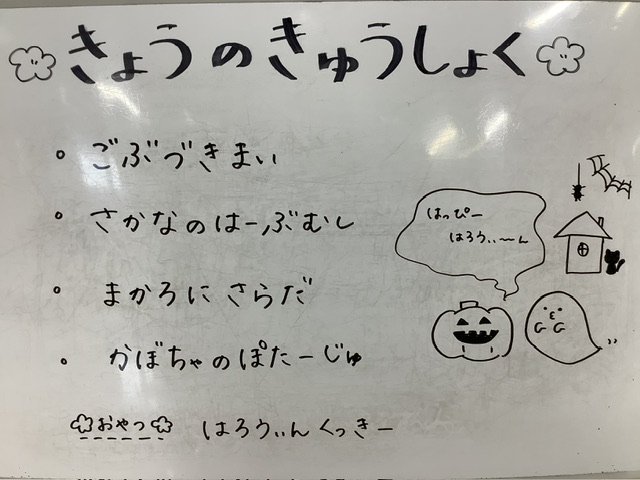 きょうのきゅうしょく
・ ごぶづきまい
・ さかなのはーぶむし
・ まかろにさらだ
・ かぼちゃのぽたーじゅ
おやつ はろうぃんくっきー
はっぴー
はろうぃ〜ん